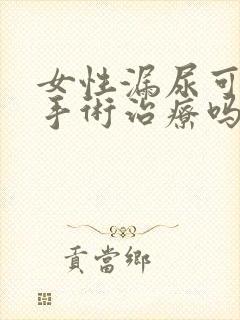 女性漏尿可
手術治療吗
貢當鄉